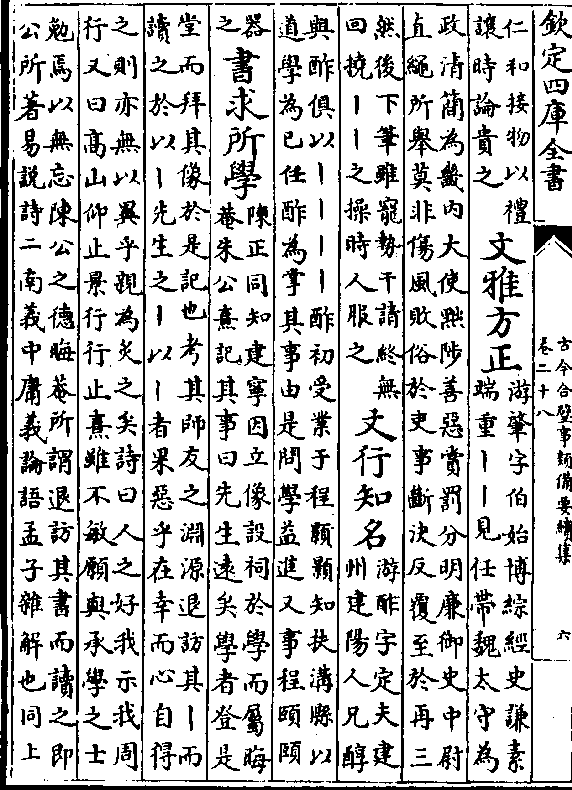 欽定四庫全書
古今合璧事類備要續集
卷二十八
六
仁和接物以禮
讓時論貴之
文雅方正
游肇字伯始博綜經史謙素
端重丨丨見任帶魏太守為
政清簡為畿内大使黜陟善惡賞罰分明廉御史中尉
直繩所舉莫非傷風敗俗於吏事斷決反覆至於再三
然後下筆雖寵勢干請終無
回撓丨丨之操時人服之
文行知名
游酢字定夫建
州建陽人兄醇
與酢俱以丨丨丨丨酢初受業于程顥顥知扶溝縣以
道學為已任酢為掌其事由是問學益進又事程頤頤
器
之
書求所學
陳正同知建寧因立像設祠於學而屬晦
菴朱公熹記其事曰先生逺矣學者登是
堂而拜其像於是記也考其師友之淵源退訪其丨而
讀之於以丨先生之丨以丨者果惡乎在幸而心自得
之則亦無以異乎親為炙之矣詩曰人之好我示我周
行又曰髙山仰止景行行止熹雖不敏願與承學之士
勉焉以無忘陳公之德晦菴所謂退訪其書而讀之即
公所著易説詩二南義中庸義論語孟子雜解也同上